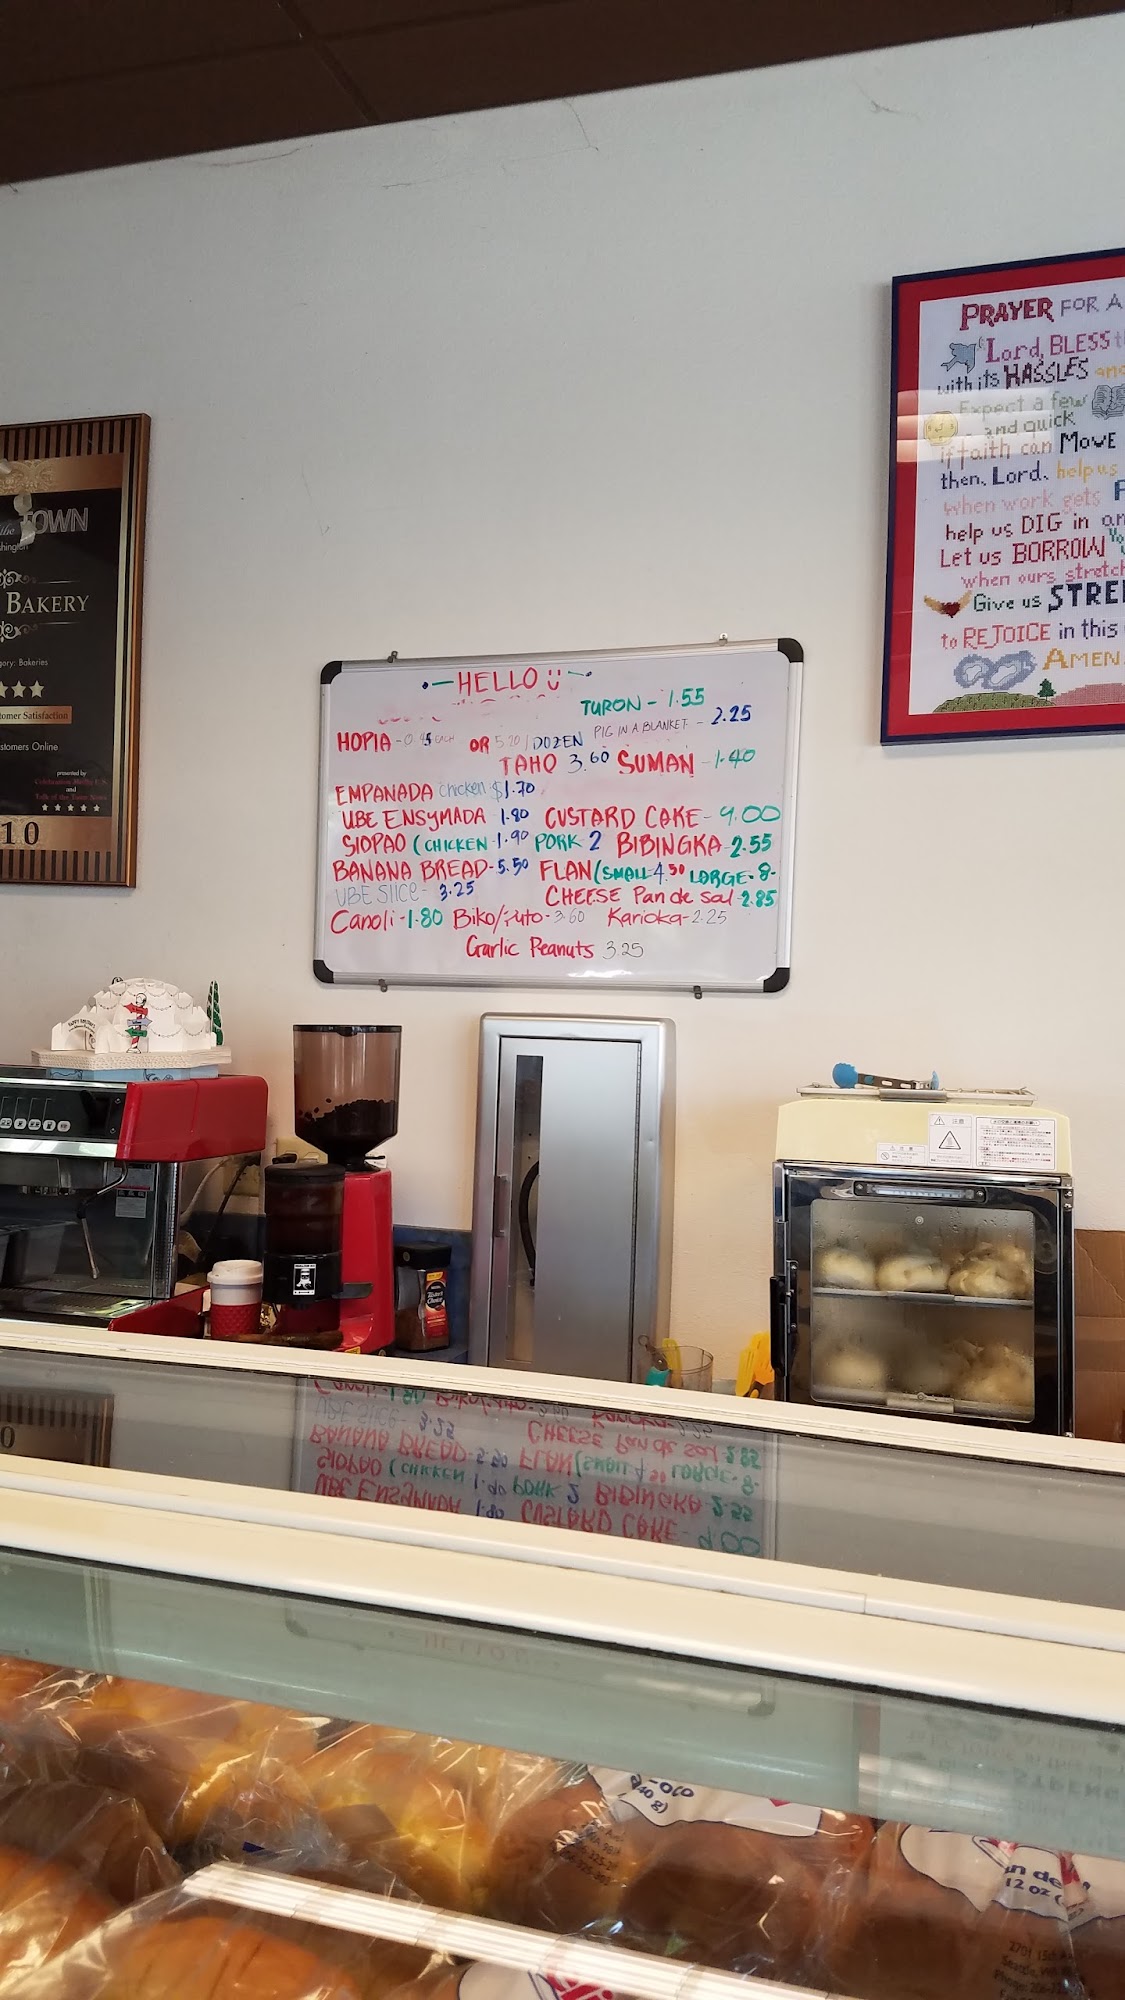 HELLO
TURON - 1.55
PIG IN A BLANKET - 2.25
HOPIA - 0.45 EACH OR 5.20 / DOZEN
TAHO 3.60 SUMAN - 1.40
EMPANADA chicken $1.70
UBE ENSYMADA - 1.80 CUSTARD CAKE - 9.00
SIOPAO (CHICKEN - 1.90 PORK 2 BIBINGKA - 2.55
BANANA BREAD - 5.50 FLAN (SMALL 4.50 LARGE - 8-
UBE Slice - 3.25 CHEESE Pan de sal - 2.85
Canoli - 1.80 Biko/Puto - 3.60 Karioka - 2.25
Garlic Peanuts 3.25
PRAYER FOR A
Lord, BLESS
with its HASSLES and
Expect a few
and quick
if faith can MOVE
then, Lord, help us
when work gets
help us DIG in
Let us BORROW
when ours stretch
Give us
to REJOICE in this
AMEN
the TOWN
BAKERY
Category: Bakeries
Customer Satisfaction
Customers Online
presented by
and
10
注意
12 oz
2701 15th